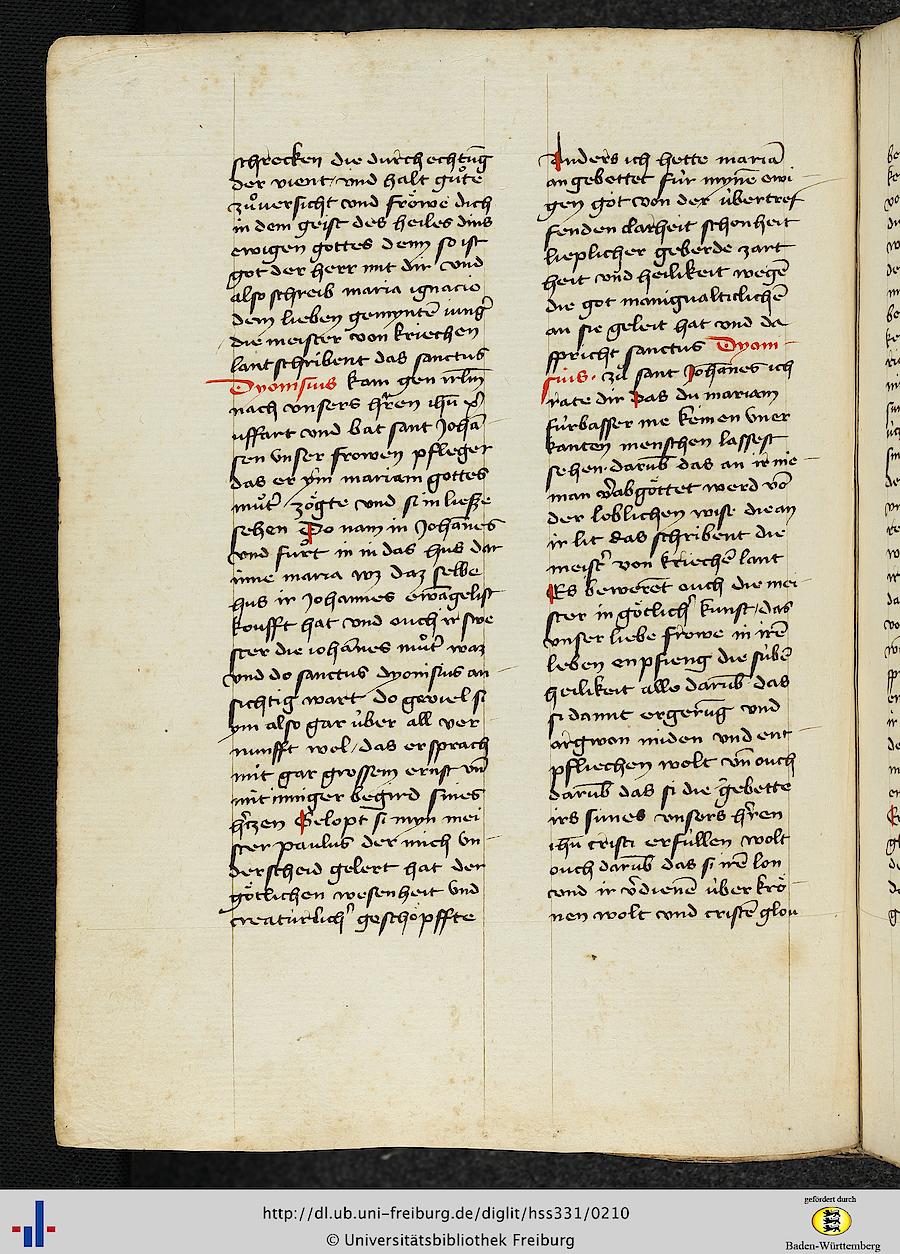 schrecken die durchechtūg
der vient · vnd halt gůte
zůversicht vnd fröwe dich
in dem geist des heiles dins
ewigen gottes denn so ist
got der herr mit dir vnd
also schreib maria ignacio
dem lieben gemynten iung̕
die meister von kriechen
lant schribent das sanctus
Dyonisius kam gen irl̄m
nach vnsers h̕ren ih̄u x̄
uffart vnd bat sant Johā
sen vnser frowen pfleger
das er ym mariam gottes
můt̕ zögte vnd si in liesze
sehen Do nam in Johānes
vnd fůrt in in das hus dar
inne maria wz daz selbe
hus ir Johannes ewāgelist
koufft hat vnd ouch ir swe
ster die iohānes můt̕ waz
vnd do sanctus dyonisius an
sichtig wart do geviel si
ym also gar über all ver
nunfft wol / das er sprach
mit gar grossem ernst vn̄
mit inniger begird sines
h̕tzen Gelopt si myn mei
ster paulus der mich vn
derscheid gelert hat der
götlichen wesenheit vnd
creatürlich̕ geschöpffte
Anders ich hette mariā
an gebettet für myne ewi
gen got von der übertref
fenden clarheit schonheit
lieplicher geberde zart
heit vnd heilikeit wegē
die got manigualticlichē
an sie geleit hat vnd da
spricht sanctus Dyoni
sius · zů sant Johānes ich
rate dir das du mariam
fürbasser me keinen vner
kanten menschen lassest
sehen · darūb das an ir nie
man v̕abgöttet werd vō
der loblichen wise die an
ir lit das schribent die
meist̕ von kriechē lant
Es bewerēt ouch die mei
ster in götlich̕ kunst / das
vnser liebe frowe in irē
leben enpfieng die sübē
heilikeit alle darūb das
si damit ergerūg vnd
argwon miden vnd ent
pfliechen wolt vn̄ ouch
darūb das si die gebette
irs sunes vnsers h̕ren
ih̄u cristi erfüllen wolt
ouch darūb das si irē lon
vnd ir v̕dienē über krö
nen wolt vnd cristē glou
http://dl.ub.uni-freiburg.de/diglit/hss331/0210
© Universitätsbibliothek Freiburg
gefördert durch
Baden-Württemberg